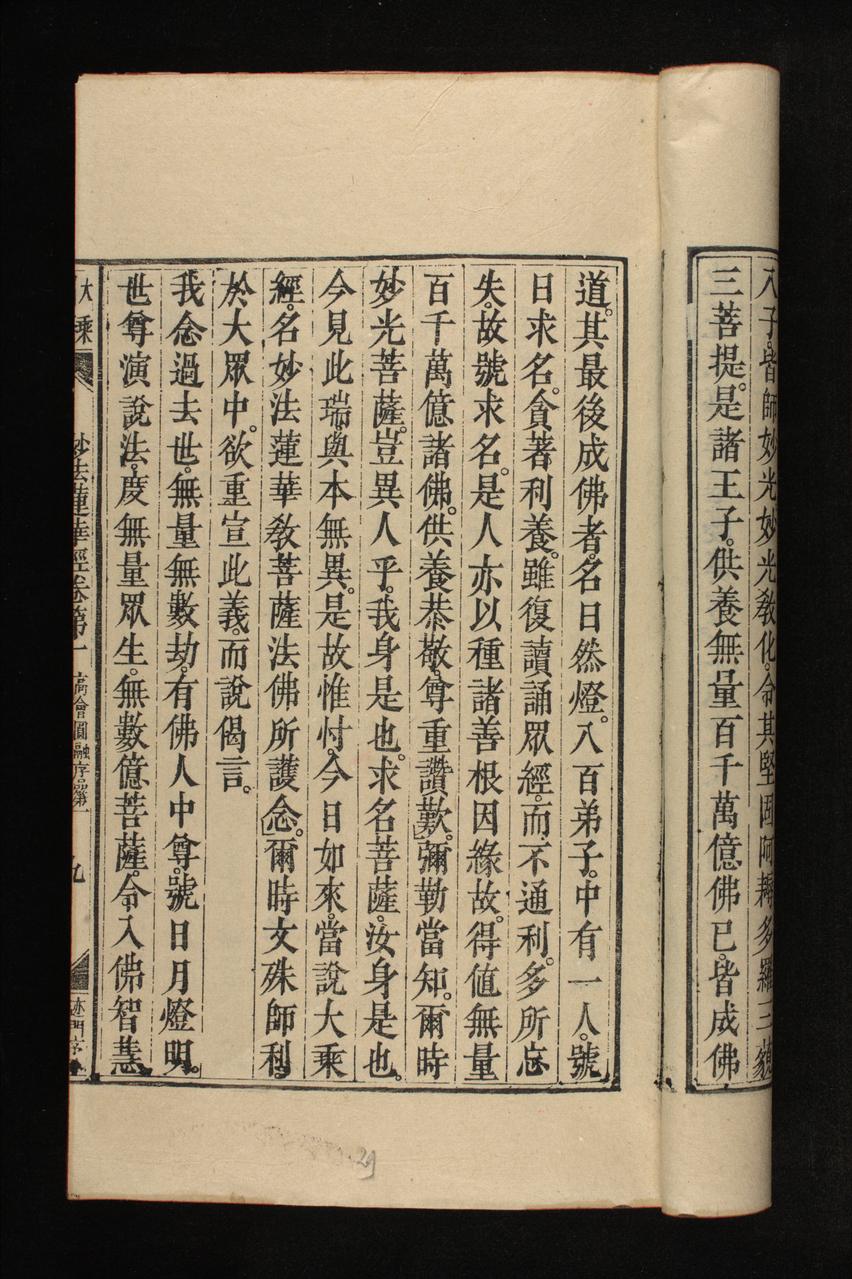 八子。皆師妙光。妙光教化。令其堅固阿耨多羅三藐
三菩提。是諸王子。供養無量百千萬億佛已。皆成佛
道。其最後成佛者。名曰然燈。八百弟子。中有一人。號
曰求名。貪著利養。雖復讀誦眾經。而不通利。多所忘
失。故號求名。是人亦以種諸善根因緣故。得值無量
百千萬億諸佛。供養恭敬。尊重讚歎。彌勒當知。爾時
妙光菩薩。豈異人乎。我身是也。求名菩薩。汝身是也。
今見此瑞。與本無異。是故惟忖。今日如來。當說大乘
經。名妙法蓮華教菩薩法佛所護念。爾時文殊師利。
於大眾中。欲重宣此義。而說偈言。
我念過去世。無量無數劫。有佛人中尊。號日月燈明。
世尊演說法。度無量眾生。無數億菩薩。令入佛智慧。
大乘 妙法蓮華經卷第一 高會圓融序品第一 九 迹門序
29